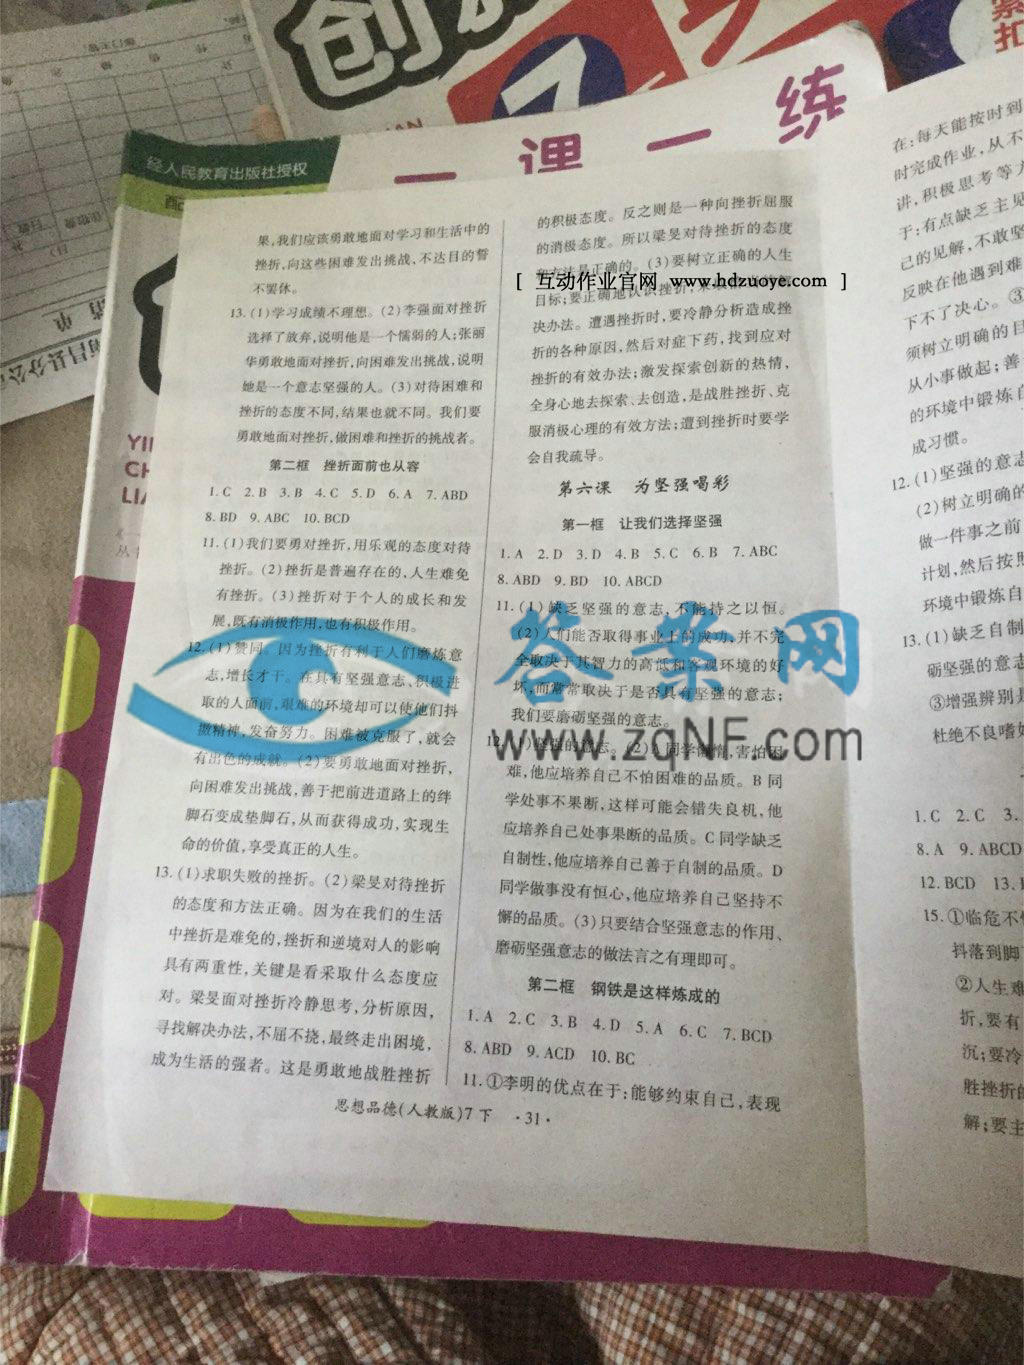 创
一课一练
经人民教育出版社授权
果,我们应该勇敢地面对学习和生活中的
挫折,向这些困难发出挑战,不达目的誓
不罢休。
13.(1)学习成绩不理想。(2)李强面对挫折
选择了放弃,说明他是一个懦弱的人;张丽
华勇敢地面对挫折,向困难发出挑战,说明
她是一个意志坚强的人。(3)对待困难和
挫折的态度不同,结果也就不同。我们要
勇敢地面对挫折,做困难和挫折的挑战者。
第二框 挫折面前也从容
1.C 2.B 3.B 4.C 5.D 6.A 7.ABD
8.BD 9.ABC 10.BCD
11.(1)我们要勇对挫折,用乐观的态度对待
挫折。(2)挫折是普遍存在的,人生难免
有挫折。(3)挫折对于个人的成长和发
展,既有消极作用,也有积极作用。
12.(1)赞同。因为挫折有利于人们磨炼意
志,增长才干。在具有坚强意志、积极进
取的人面前,艰难的环境却可以使他们抖
擞精神,发奋努力。困难被克服了,就会
有出色的成就。(2)要勇敢地面对挫折,
向困难发出挑战,善于把前进道路上的绊
脚石变成垫脚石,从而获得成功,实现生
命的价值,享受真正的人生。
13.(1)求职失败的挫折。(2)梁旻对待挫折
的态度和方法正确。因为在我们的生活
中挫折是难免的,挫折和逆境对人的影响
具有两重性,关键是看采取什么态度应
对。梁旻面对挫折冷静思考,分析原因,
寻找解决办法,不屈不挠,最终走出困境,
成为生活的强者。这是勇敢地战胜挫折
的积极态度。反之则是一种向挫折屈服
的消极态度。所以梁旻对待挫折的态度
和方法是正确的。(3)要树立正确的人生
[ 互动作业官网 www.hdzuoye.com ]
目标;要正确地认识挫折,
决办法。遭遇挫折时,要冷静分析造成挫
折的各种原因,然后对症下药,找到应对
挫折的有效办法;激发探索创新的热情,
全身心地去探索、去创造,是战胜挫折、克
服消极心理的有效方法;遭到挫折时要学
会自我疏导。
第六课 为坚强喝彩
第一框 让我们选择坚强
1.A 2.D 3.D 4.B 5.C 6.B 7.ABC
8.ABD 9.BD 10.ABCD
11.(1)缺乏坚强的意志,不能持之以恒。
(2)人们能否取得事业上的成功,并不完
全取决于其智力的高低和客观环境的好
坏,而常常取决于是否具有坚强的意志;
我们要磨砺坚强的意志。
12.(1)坚强的意志。(2)A同学懒惰,害怕困
难,他应培养自己不怕困难的品质。B同
学处事不果断,这样可能会错失良机,他
应培养自己处事果断的品质。C同学缺乏
自制性,他应培养自己善于自制的品质。D
同学做事没有恒心,他应培养自己坚持不
懈的品质。(3)只要结合坚强意志的作用、
磨砺坚强意志的做法言之有理即可。
第二框 钢铁是这样炼成的
1.A 2.C 3.B 4.D 5.A 6.C 7.BCD
8.ABD 9.ACD 10.BC
11.①李明的优点在于;能够约束自己,表现
思想品德(人教版)7下 ·31·
答案网
www.zqNF.com
在:每天能按时到
时完成作业,从不
讲,积极思考等
于:有点缺乏主见
己的见解,不敢坚
反映在他遇到难
下不了决心。③
须树立明确的目
从小事做起;善
的环境中锻炼自
成习惯。
12.(1)坚强的意志
(2)树立明确的
做一件事之前
计划,然后按照
环境中锻炼自
13.(1)缺乏自制
砺坚强的意志
③增强辨别是
杜绝不良嗜好
1.C 2.C 3.
8.A 9.ABCD
12.BCD 13.
15.①临危不
抖落到脚
②人生难
折,要有
沉;要冷
胜挫折的
解;要主